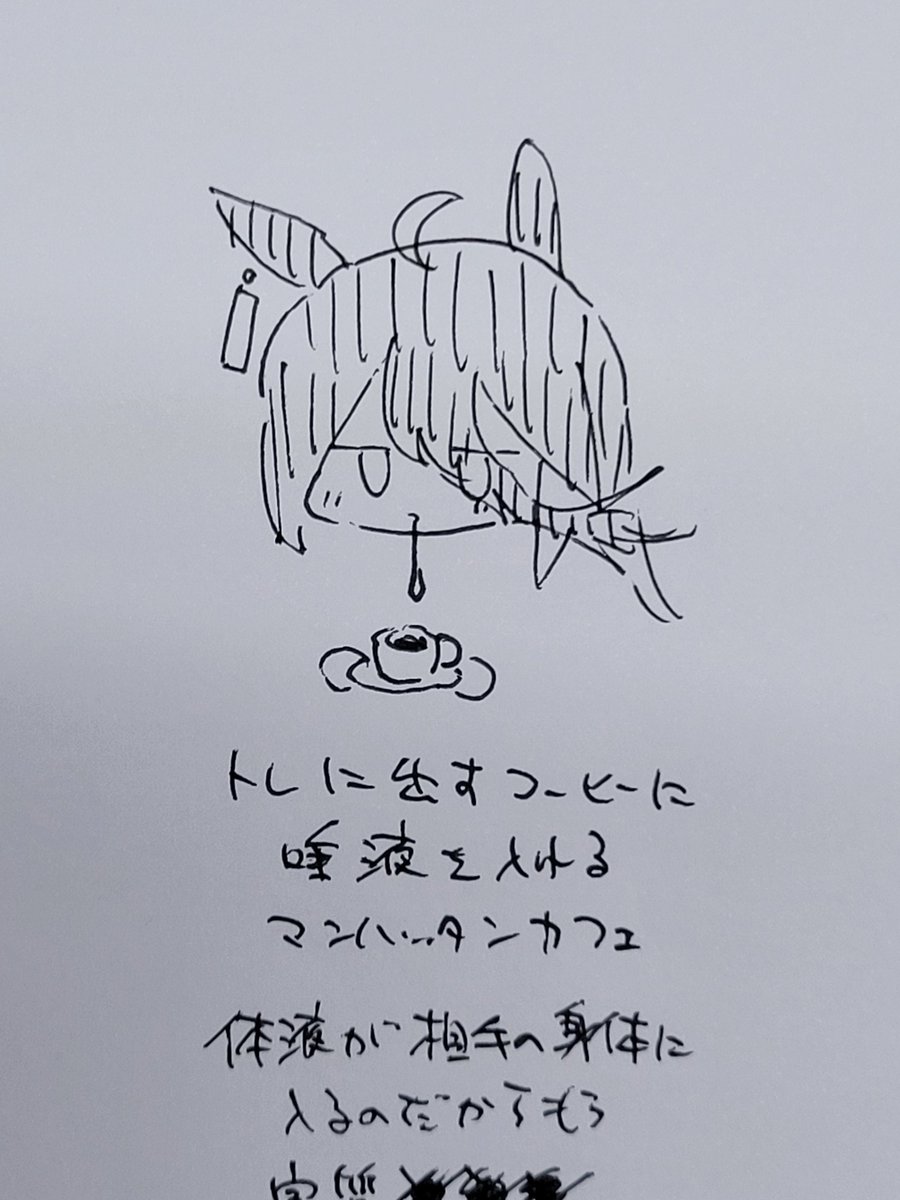 トレに出すコーヒーに
唾液を入れる
マンハッタンカフェ
体液が相手の身体に
入るのだからもう
実質